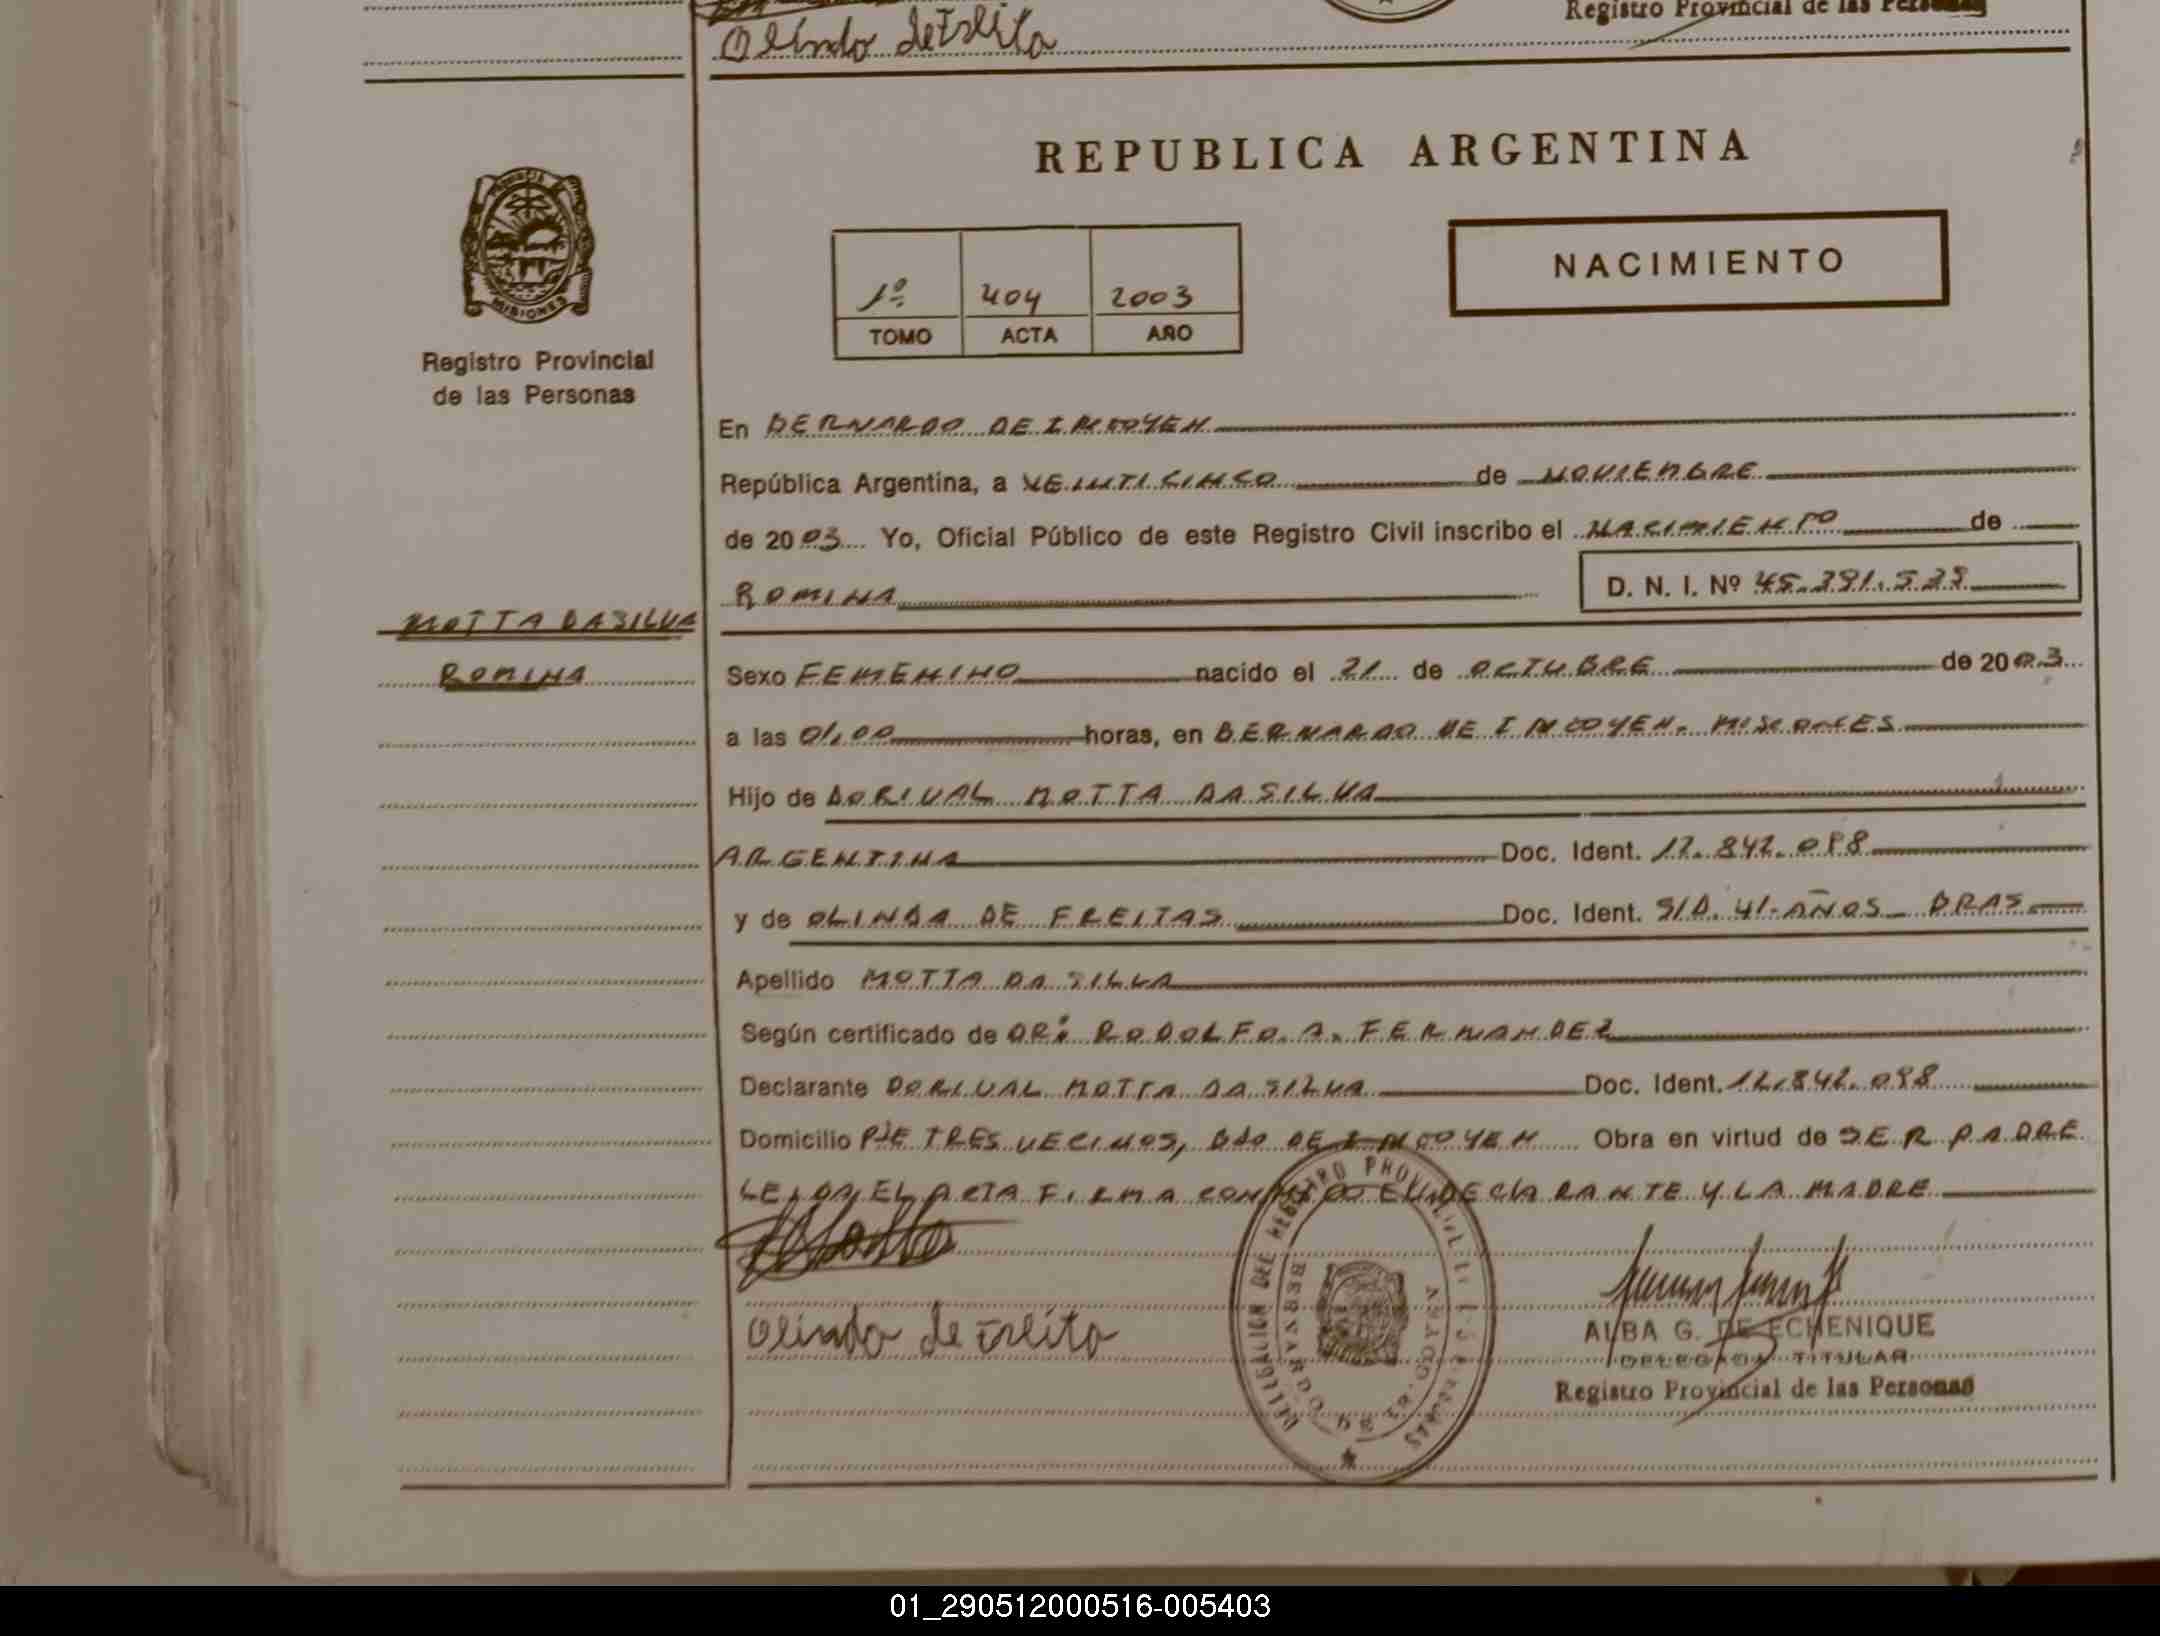 Registro Provincial de las Personas
Olindo de Freita
REPUBLICA ARGENTINA
PROVINCIA DE
MISIONES
Registro Provincial
de las Personas
1º 404 2003
TOMO ACTA AÑO
NACIMIENTO
En BERNARDO DE IRIGOYEN
República Argentina, a VEINTICINCO de NOVIEMBRE
de 2003 Yo, Oficial Público de este Registro Civil inscribo el NACIMIENTO de
ROMINA D. N. I. Nº
MOTTA DASILVA
ROMINA
Sexo FEMENINO nacido el 21 de OCTUBRE de 2003
a las 01,00 horas, en BERNARDO DE IRIGOYEN. MISIONES
Hijo de DORIVAL MOTTA DASILVA
ARGENTINA Doc. Ident.
y de OLINDA DE FREITAS Doc. Ident. S/D. 41-AÑOS- BRAS
Apellido MOTTA DA SILVA
Según certificado de DR: RODOLFO. A. FERNANDEZ
Declarante DORIVAL MOTTA DA SILVA Doc. Ident.
Domicilio PJE TRES VECINOS, BDO DE IRIGOYEN Obra en virtud de SER PADRE
LEIDA EL ACTA FIRMA CONMIGO EL DECLARANTE Y LA MADRE
Olindo de Freita
DELEGACION DEL REGISTRO PROVINCIAL DE LAS PERSONAS
BERNARDO DE IRIGOYEN
ALBA G. DE ECHENIQUE
DELEGADA TITULAR
Registro Provincial de las Personas
01_290512000516-005403